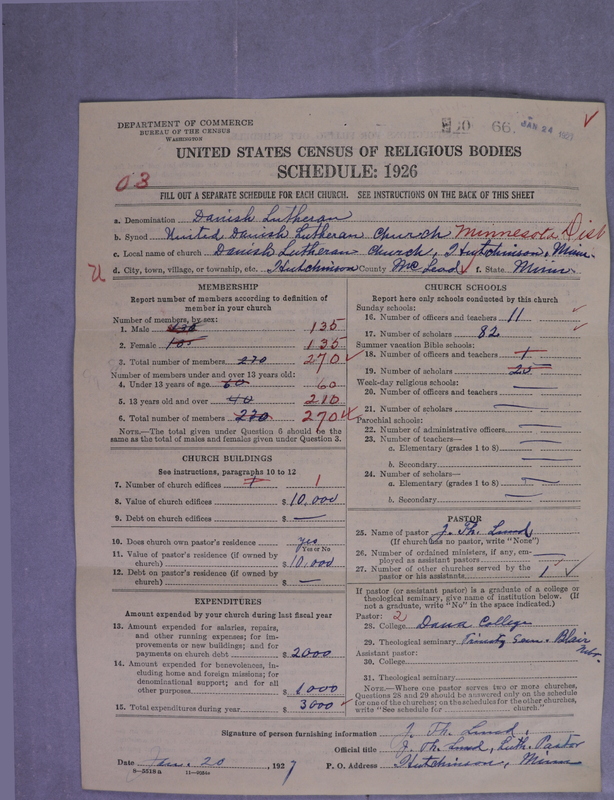 DEPARTMENT OF COMMERCE
BUREAU OF THE CENSUS
WASHINGTON
66. JAN 24 1927
UNITED STATES CENSUS OF RELIGIOUS BODIES
SCHEDULE: 1926
03
FILL OUT A SEPARATE SCHEDULE FOR EACH CHURCH. SEE INSTRUCTIONS ON THE BACK OF THIS SHEET
a. Denomination Danish Lutheran
b. Synod United Danish Lutheran Church Minnesota Dist
c. Local name of church Danish Lutheran Church, Hutchinson, Minn.
d. City, town, village, or township, etc. Hutchinson County McLeod f. State Minn.
MEMBERSHIP
Report number of members according to definition of member in your church
Number of members, by sex:
1. Male 135
2. Female 105 135
3. Total number of members 270 270
Number of members under and over 13 years old:
4. Under 13 years of age 60 60
5. 13 years old and over 210
6. Total number of members 270 270
NOTE.—The total given under Question 6 should be the same as the total of males and females given under Question 3.
CHURCH BUILDINGS
See instructions, paragraphs 10 to 12
7. Number of church edifices 1 1
8. Value of church edifices $ 10,000
9. Debt on church edifices $ —
10. Does church own pastor's residence? yes
Yes or No
11. Value of pastor's residence (if owned by church) $ 10,000
12. Debt on pastor's residence (if owned by church) $ —
EXPENDITURES
Amount expended by your church during last fiscal year
13. Amount expended for salaries, repairs, and other running expenses; for improvements or new buildings; and for payments on church debt $ 2000
14. Amount expended for benevolences, including home and foreign missions; for denominational support; and for all other purposes $ 1000
15. Total expenditures during year $ 3000
CHURCH SCHOOLS
Report here only schools conducted by this church
Sunday schools:
16. Number of officers and teachers 11
17. Number of scholars 82
Summer vacation Bible schools:
18. Number of officers and teachers 1
19. Number of scholars 20
Week-day religious schools:
20. Number of officers and teachers —
21. Number of scholars —
Parochial schools:
22. Number of administrative officers —
23. Number of teachers—
a. Elementary (grades 1 to 8) —
b. Secondary —
24. Number of scholars—
a. Elementary (grades 1 to 8) —
b. Secondary —
PASTOR
25. Name of pastor J. Th. Lund
(If church has no pastor, write "None")
26. Number of ordained ministers, if any, employed as assistant pastors —
27. Number of other churches served by the pastor or his assistants 1
If pastor (or assistant pastor) is a graduate of a college or theological seminary, give name of institution below. (If not a graduate, write "No" in the space indicated.)
Pastor: 2
28. College Dana College
29. Theological seminary Trinity Sem. Blair Nebr.
Assistant pastor:
30. College
31. Theological seminary
NOTE.—Where one pastor serves two or more churches, Questions 28 and 29 should be answered only on the schedule for one of the churches; on the schedules for the other churches, write "See schedule for church."
Signature of person furnishing information J. Th. Lund.
Official title J. Th. Lund, Luth. Pastor
Date Jan. 20, 1927 P. O. Address Hutchinson, Minn
8—5518 a